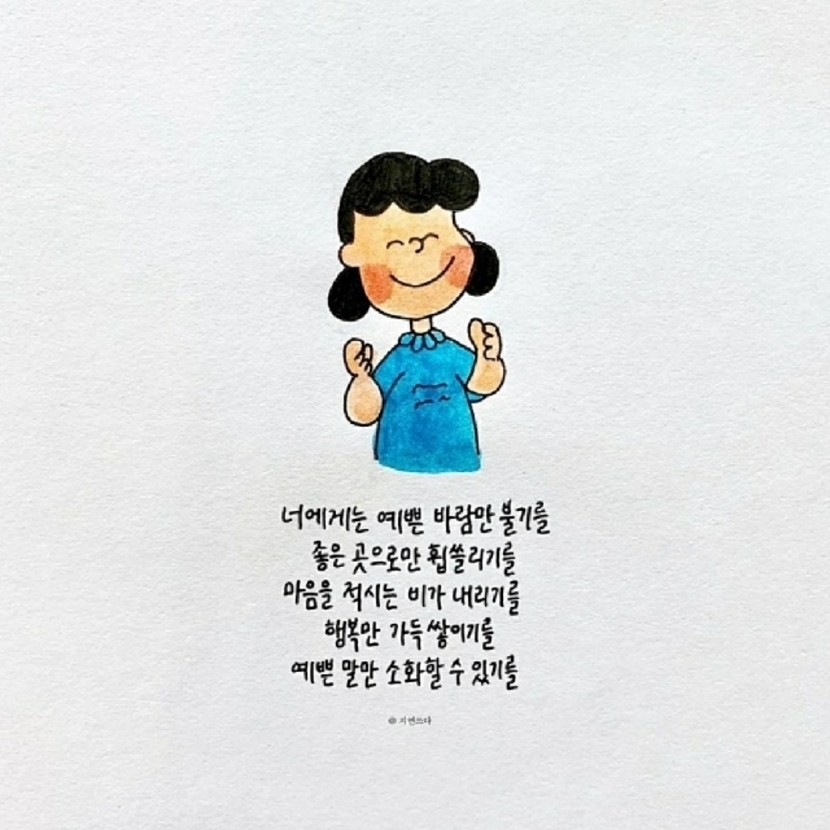 너에게는 예쁜 바람만 불기를
좋은 곳으로만 휩쓸리기를
마음을 적시는 비가 내리기를
행복만 가득 쌓이기를
예쁜 말만 소화할 수 있기를
지연쓰다